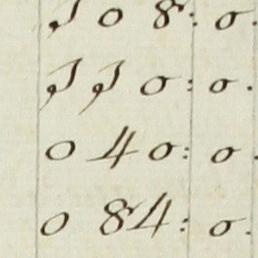 108: 0.
110: 0.
040: 0.
084: 0.